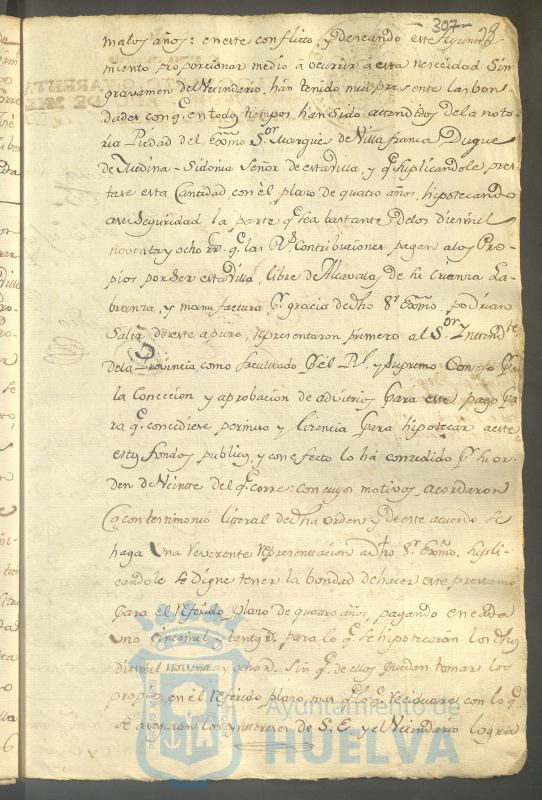 -307-
malos años: en este conflicto, y deseando este Ayunta-
miento proporcionar medio à ocurrir à esta nesecidad sin
gravamen del Vecindario, han tenido mui presente las bon-
dades con q.e en todos tiempos han sido attendidos de la noto-
ria Piedad del Exmo S.or Marqués de Villafranca Duque
de Medina-Sidonia Señor de esta Villa, y q.e suplicandole pres-
tase esta Cantidad, con el plazo de quatro años, hipotecando
a su seguridad la parte q.e sea bastante de los diesmil
noventa y ocho rr.s q.e las R.s Contribuciones pagan a los Pro-
pios por ser esta Villa, libre de Alcavalas de su crianza La-
branza, y manufactura p.r gracia de dho S.r Exmo, podrian
salir de este apuro, representaron primero al S.or Intend.te
de la Provincia, como facultado p.r el R.l y Supremo Consejo p.a
la Concecion y aprobacion de advitrios para este pago pa
ra q.e concediese permiso y licencia para hipotecar a este
estos fondos publicos, y con efecto lo há concedido p.r su or-
den de Veinte del q.e corre: con cuyos motivos, acordaron
q.e con testimonio litteral de dha orden y de este acuerdo se
haga una reverente representacion a dho S.r Exmo. supli-
candole se digne tener la bondad de hacer este prestamo
para el referido plazo de quattro años, pagando en cada
uno cincomil y tantos r.s para lo q.e se hipotecarán los dhos
diesmil noventa y ocho r.s sin q.e de ellos puedan tomar los
propios en el referido plazo, mas q.e lo q.e reciduare, con lo q.e
se aseguran los yntereses de S.E. y el Vecindario logra
Ayuntamiento de
HUELVA